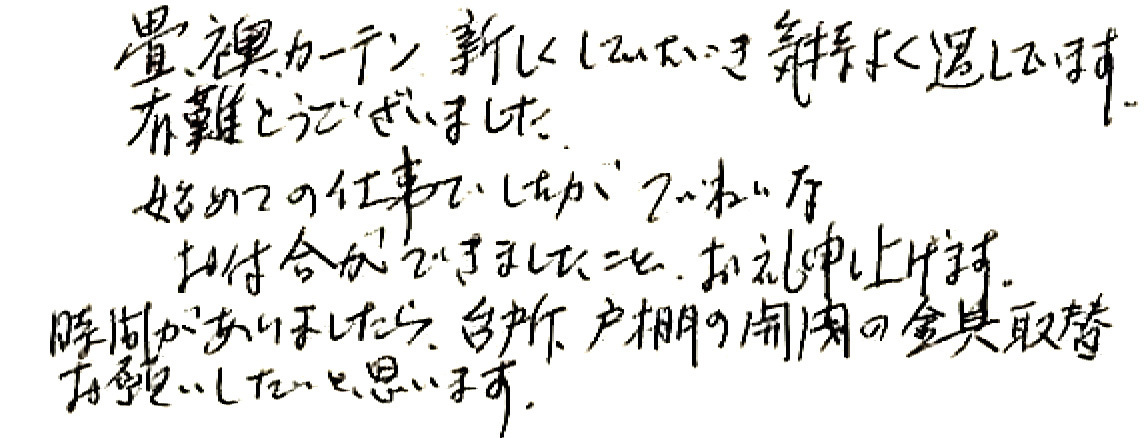 畳、襖、カーテン 新しくしていただき 気持よく過しています。
有難とうございました。
始めての仕事でしたが ていねいな
お付合ができましたこと、お礼申し上げます。
時間がありましたら、台所、戸棚の開閉の金具取替
お願いしたいと思います。